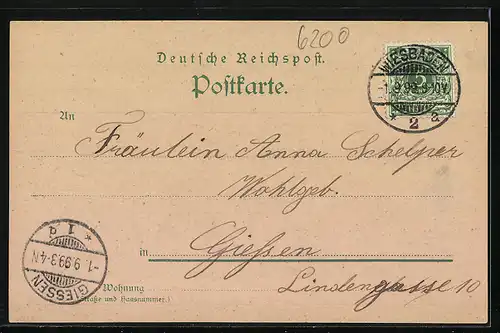 6200
Deutsche Reichspost.
Postkarte.
WIESBADEN
-1.9.99.9-10V.
* 2 a
An
Fräulein Anna Schelper
Wohlgeb.
in Giessen
Wohnung Lindengasse 10
(Straße und Hausnummer.)
GIESSEN
-1.9.99.3-4N
* 1 d